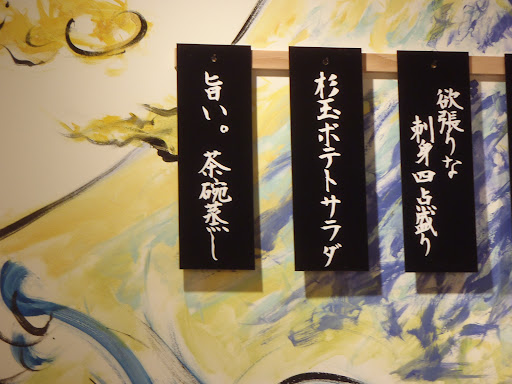 欲張りな
刺身四点盛り
杉玉ポテトサラダ
旨い。茶碗蒸し